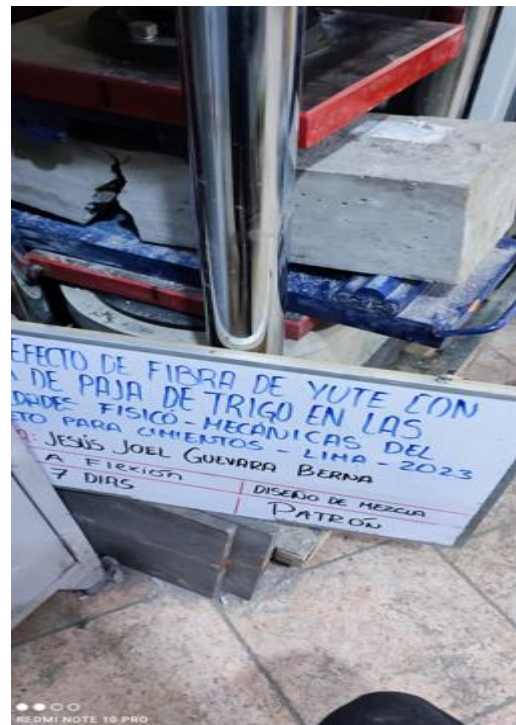 EFECTO DE FIBRA DE YUTE CON
DE PAJA DE TRIGO EN LAS
DADES FISICÓ-MECÁNICAS DEL
ETO PARA CIMIENTOS - LIMA - 2023
: JESÚS JOEL GUEVARA BERNA
A FLEXIÓN
7 DIAS
DISEÑO DE MEZCLA
PATRÓN
REDMI NOTE 10 PRO